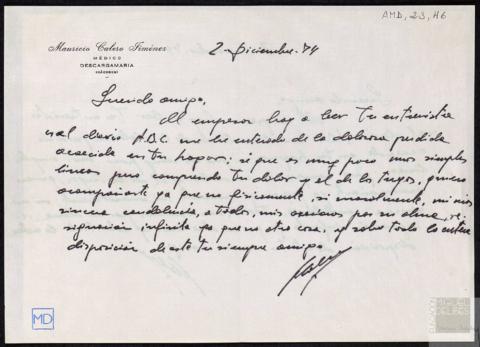 AMD, 23, 46
Mauricio Calero Jiménez
MÉDICO
DESCARGAMARIA
(CÁCERES)
2-Diciembre-74
Querido amigo,
Al empezar hoy a leer tu entrevista
en el diario A.B.C. me he enterado de la dolorosa perdida
acaecida en tu hogar; sé que es muy poco unas simples
lineas pero comprendo tu dolor y el de los tuyos, quiero
acompañarte ya que no fisicamente, si moralmente, mi más
sincera condolencia, a todos, mis oraciones por su alma, re-
signación infinita ya que no otra cosa, y sobre todo la entera
disposición de este tu siempre amigo
MD
FUNDACIÓN
MIGUEL
DELIBES